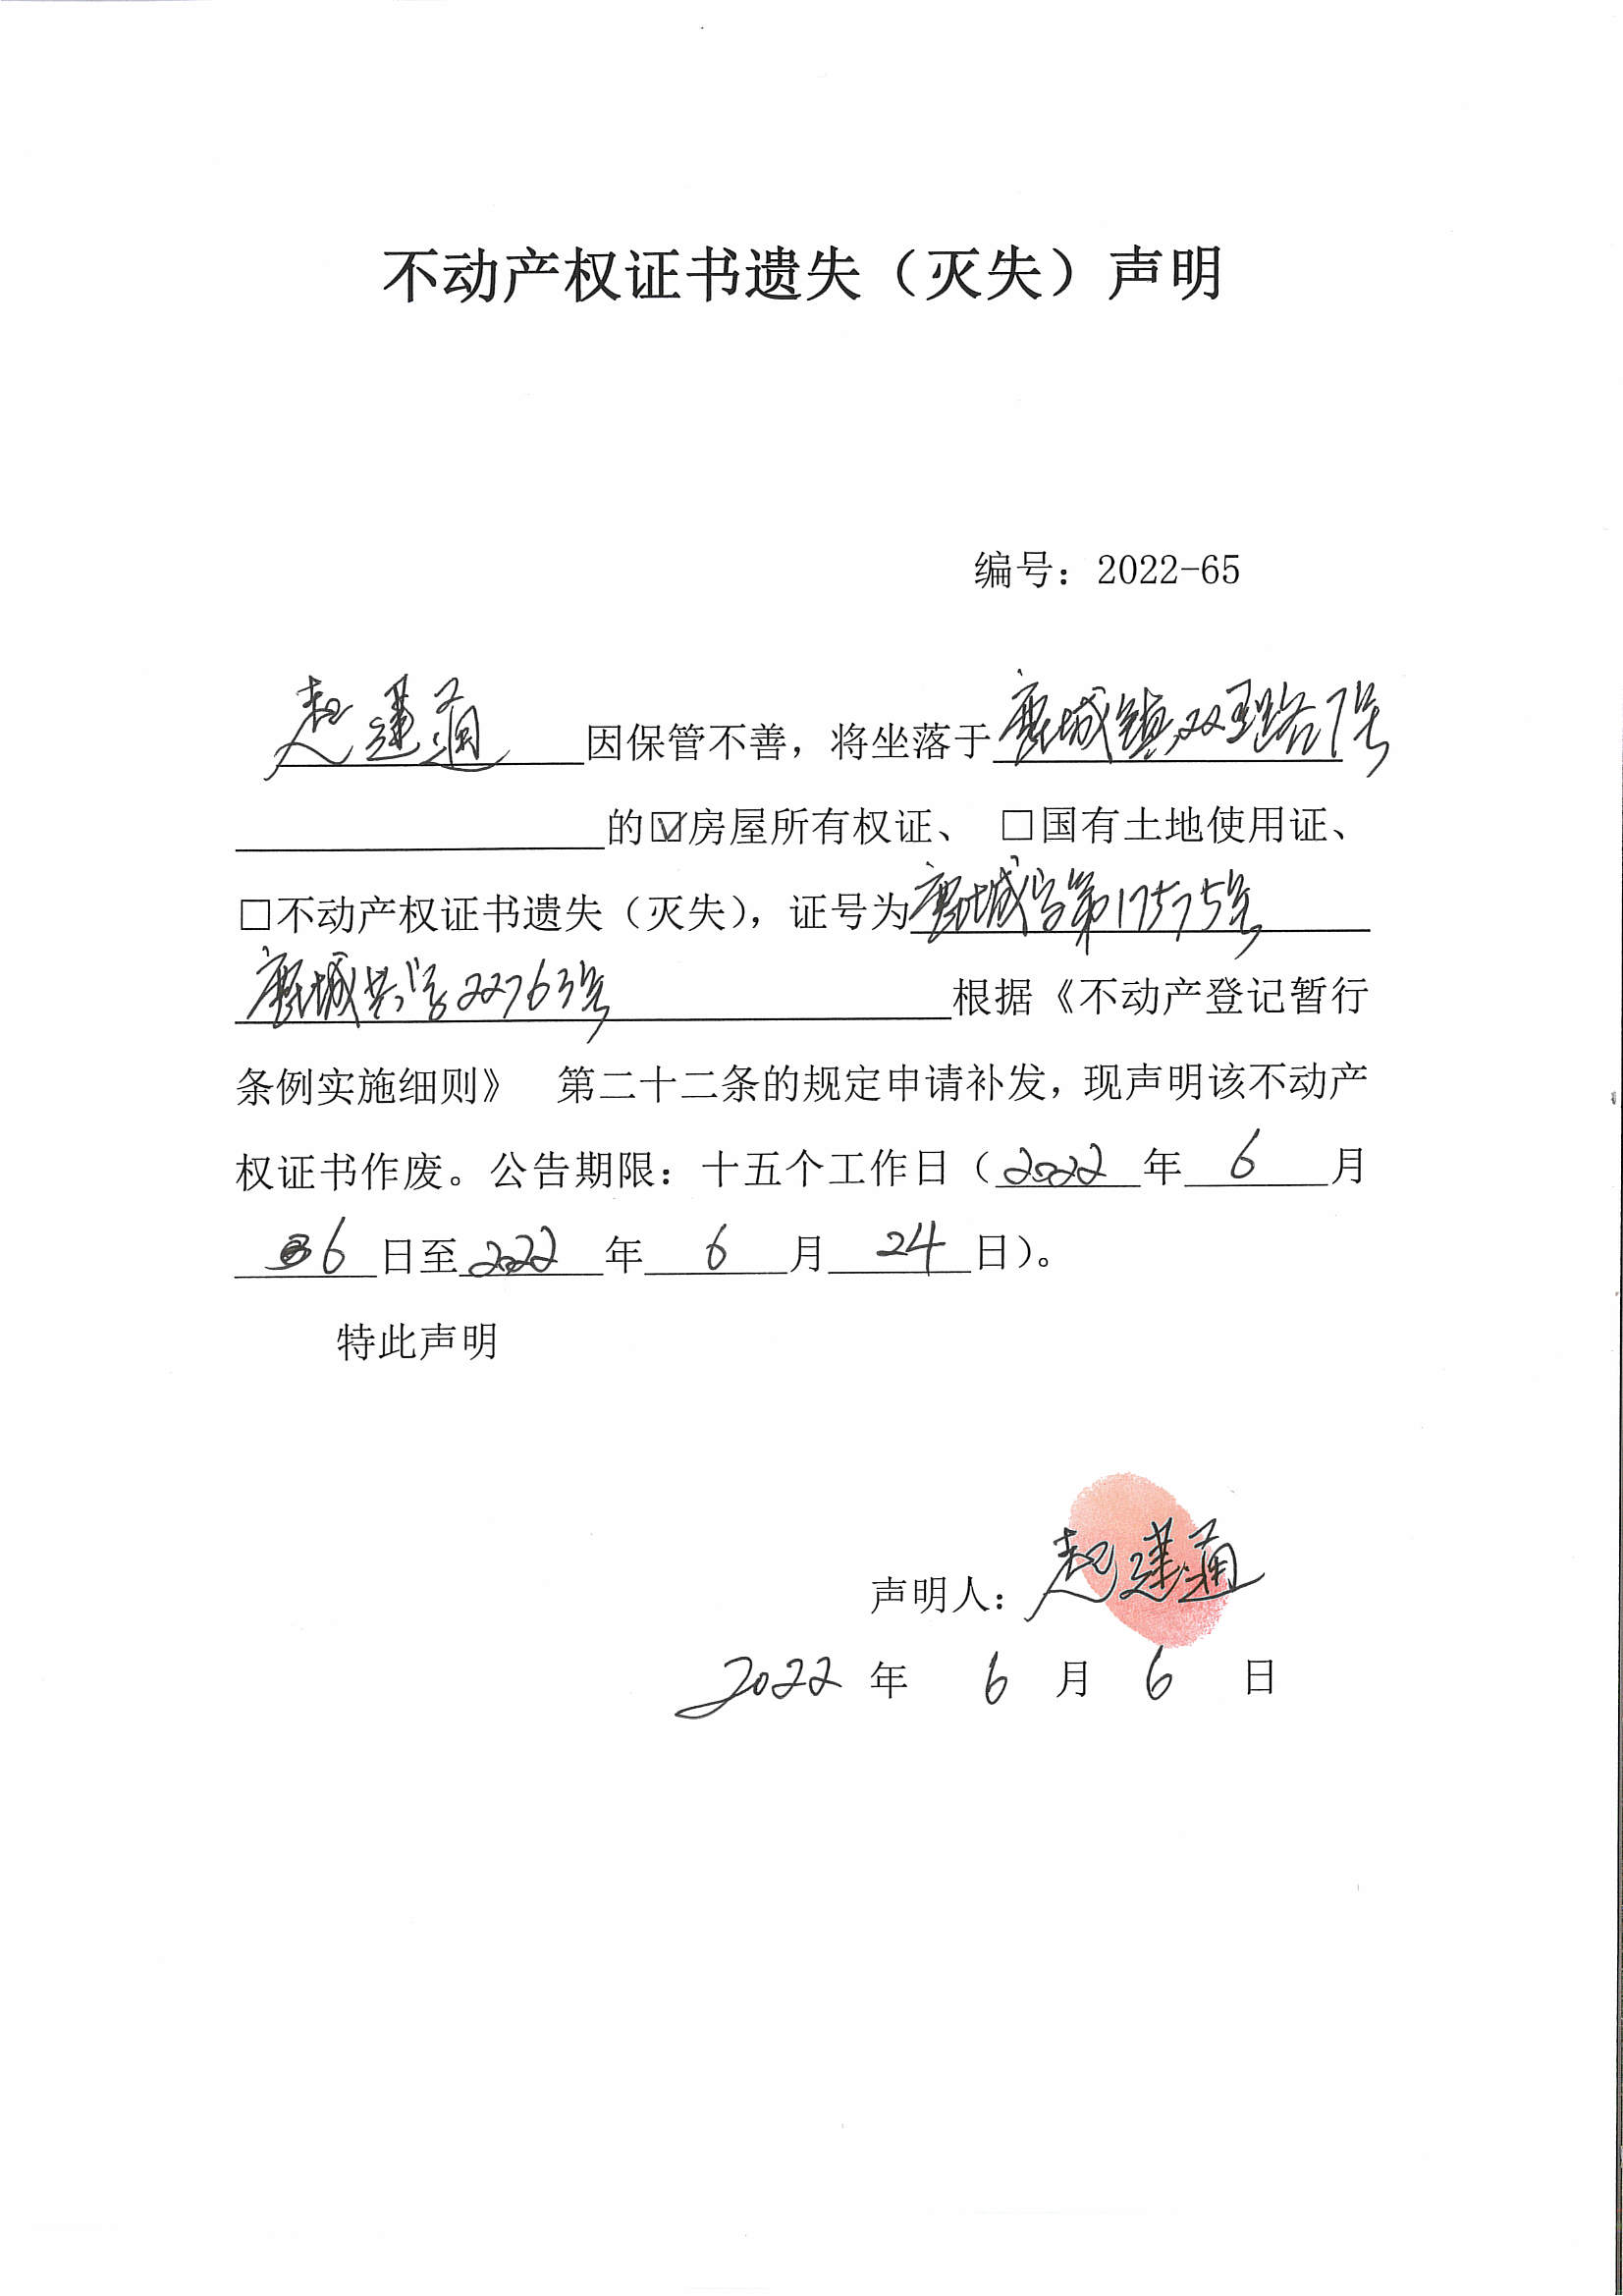 不动产权证书遗失（灭失）声明
编号：2022-65
起建通因保管不善，将坐落于鹿城镇双柏路7号
的☑房屋所有权证、 □国有土地使用证、
□不动产权证书遗失（灭失），证号为鹿城字第17575号
鹿城共字22763号根据《不动产登记暂行
条例实施细则》 第二十二条的规定申请补发，现声明该不动产
权证书作废。公告期限：十五个工作日（2022年6月
6日至2022年6月24日）。
特此声明
声明人：起建通
2022年6月6日